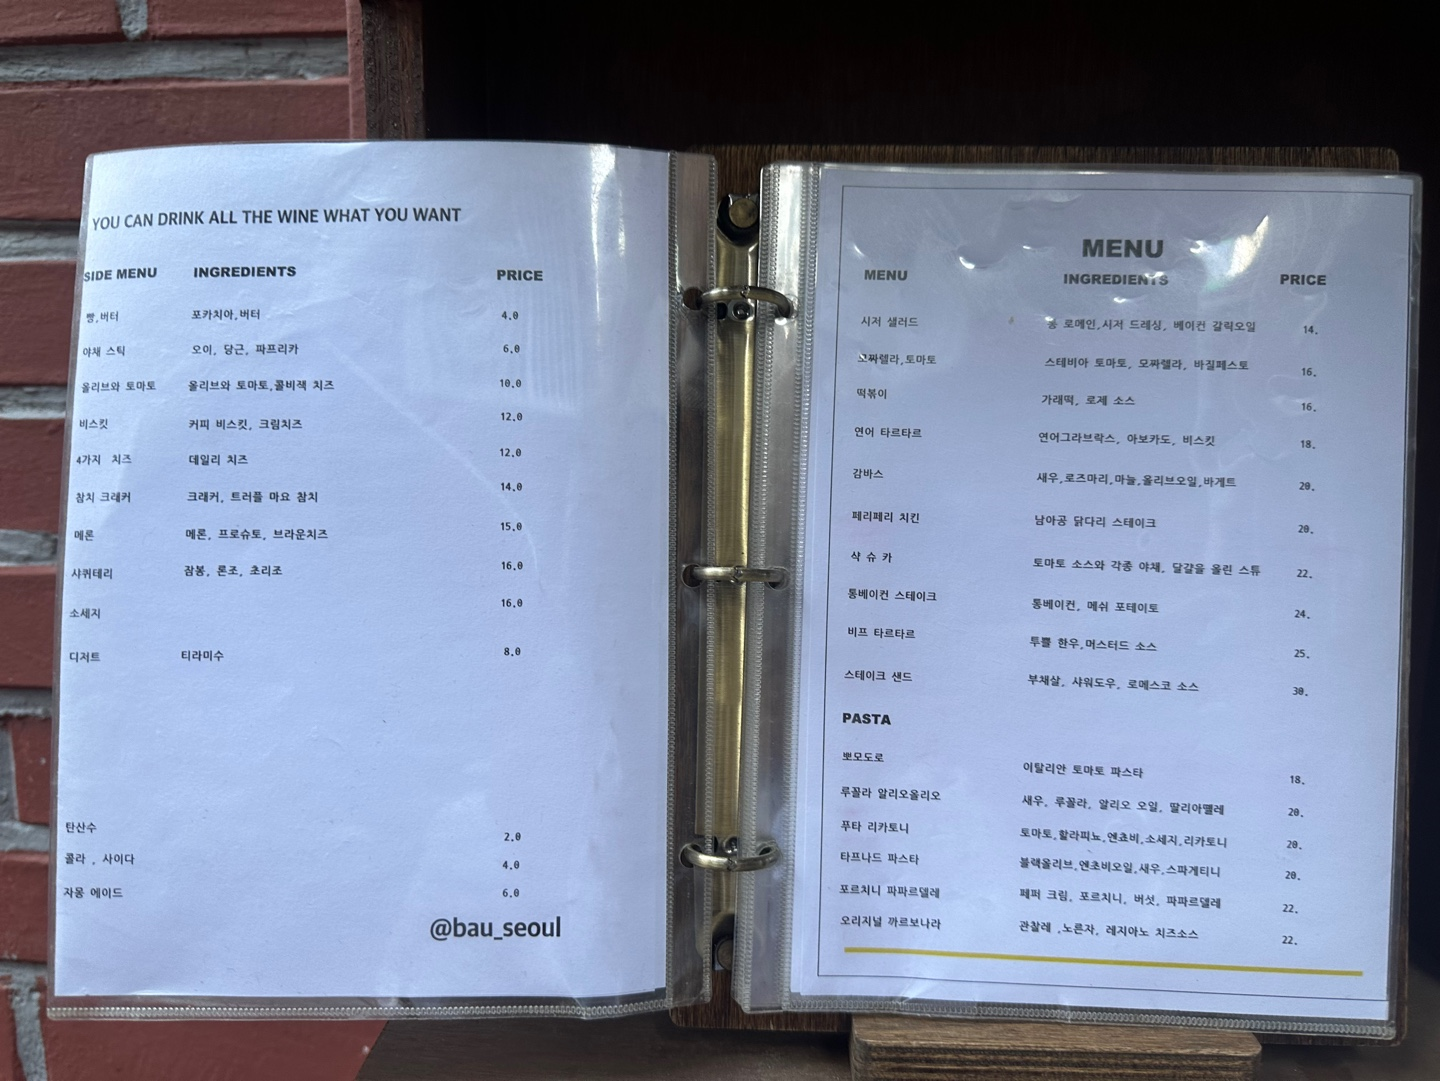 YOU CAN DRINK ALL THE WINE WHAT YOU WANT
SIDE MENU INGREDIENTS PRICE
빵,버터 포카치아,버터 4.0
야채 스틱 오이, 당근, 파프리카 6.0
올리브와 토마토 올리브와 토마토,콜비잭 치즈 10.0
비스킷 커피 비스킷, 크림치즈 12.0
4가지 치즈 데일리 치즈 12.0
참치 크래커 크래커, 트러플 마요 참치 14.0
메론 메론, 프로슈토, 브라운치즈 15.0
샤퀴테리 잠봉, 론조, 초리조 16.0
소세지 16.0
디저트 티라미수 8.0
탄산수 2.0
콜라 , 사이다 4.0
자몽 에이드 6.0
@bau_seoul
MENU
MENU INGREDIENTS PRICE
시저 샐러드 통 로메인,시저 드레싱, 베이컨 갈릭오일 14.
모짜렐라,토마토 스테비아 토마토, 모짜렐라, 바질페스토 16.
떡볶이 가래떡, 로제 소스 16.
연어 타르타르 연어그라브락스, 아보카도, 비스킷 18.
감바스 새우,로즈마리,마늘,올리브오일,바게트 20.
페리페리 치킨 남아공 닭다리 스테이크 20.
샥 슈 카 토마토 소스와 각종 야채, 달걀을 올린 스튜 22.
통베이컨 스테이크 통베이컨, 메쉬 포테이토 24.
비프 타르타르 투쁠 한우,머스터드 소스 25.
스테이크 샌드 부채살, 사워도우, 로메스코 소스 30.
PASTA
뽀모도로 이탈리안 토마토 파스타 18.
루꼴라 알리오올리오 새우, 루꼴라, 알리오 오일, 딸리아뗄레 20.
푸타 리카토니 토마토,할라피뇨,엔쵸비,소세지,리카토니 20.
타프나드 파스타 블랙올리브,엔초비오일,새우,스파게티니 20.
포르치니 파파르델레 페퍼 크림, 포르치니, 버섯, 파파르델레 22.
오리지널 까르보나라 관찰레 ,노른자, 레지아노 치즈소스 22.